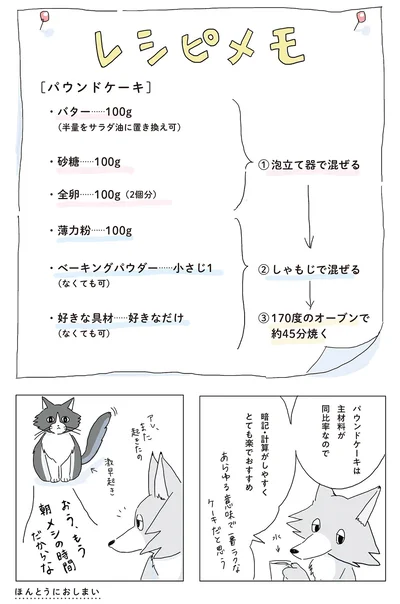 レシピメモ
[パウンドケーキ]
・バター……100g
(半量をサラダ油に置き換え可)
・砂糖……100g
・全卵……100g (2個分)
・薄力粉……100g
・ベーキングパウダー……小さじ1
(なくても可)
・好きな具材……好きなだけ
(なくても可)
①泡立て器で混ぜる
②しゃもじで混ぜる
③170度のオーブンで
約45分焼く
パウンドケーキは
主材料が
同比率なので
暗記・計算がしやすく
とても楽でおすすめ
あらゆる意味で一番ラクな
ケーキだと思う
水
アレ、
また
起きたの
激早起き
おう、もう
朝メシの時間
だからな
ほんとうにおしまい